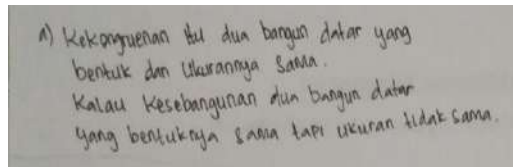 a) Kekongruenan itu dua bangun datar yang
bentuk dan Ukurannya Sama.
Kalau Kesebangunan dua bangun datar
yang bentuknya sama tapi ukuran tidak sama.